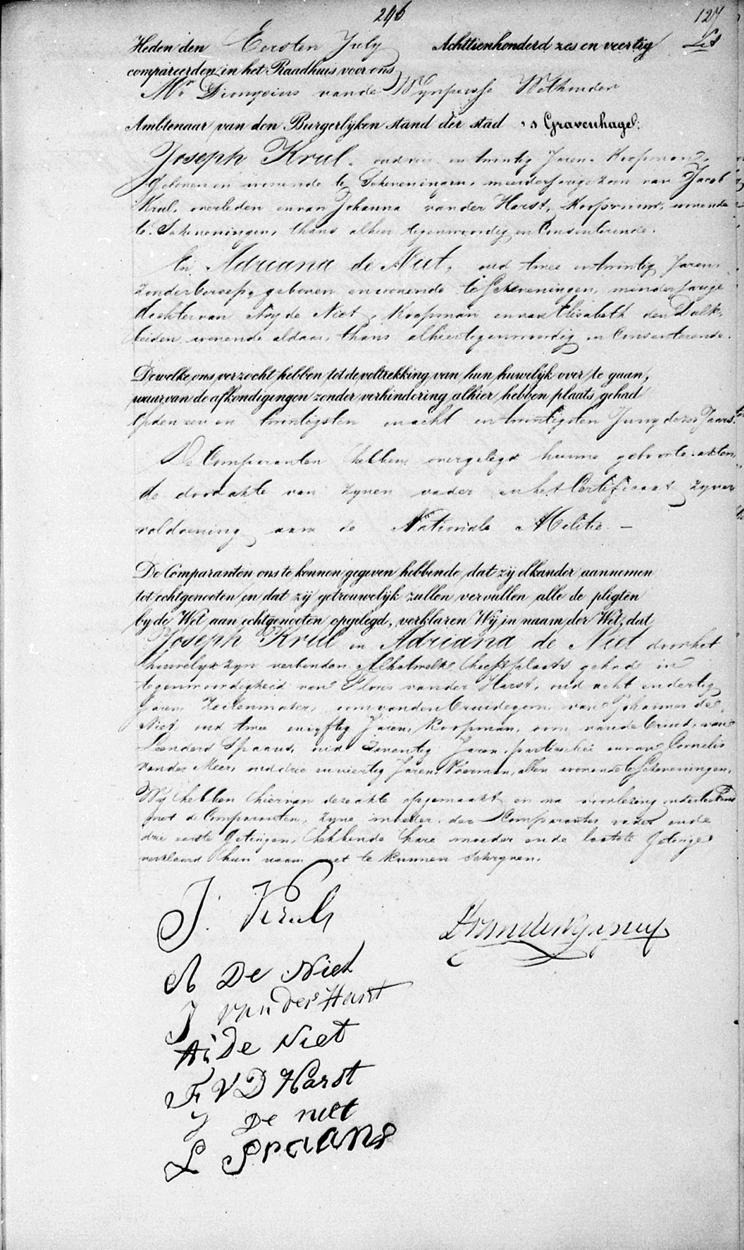 246
127
Heden den Eersten July Achttienhonderd zes en veertig
compareerden in het Raadhuis voor ons,
Mr Dionysius vande Wynpersse Wethouder
Ambtenaar van den Burgerlijken stand der stad 's Gravenhage.
Joseph Krul, oud en twintig Jaren, Koopman,
geboren en wonende te Scheveningen, meerderjarige zoon van Jacob
Krul, overleden en van Johanna van der Harst, Koopvrouw, wonende
te Scheveningen, thans alhier tegenwoordig en Consenterende.
En Adriana de Niet, oud twee en twintig Jaren
zonder beroep, geboren en wonende te Scheveningen, minderjarige
dochter van Ary de Niet, Koopman en van Elisabeth den Dulk
beiden wonende aldaar, thans alhier tegenwoordig en Consenterende.
Dewelke ons verzocht hebben tot de voltrekking van hun huwelijk over te gaan,
waarvan de afkondigingen zonder verhindering alhier hebben plaats gehad
Op den een en twintigsten en acht en twintigsten Juny dezes Jaars.
De Comparanten hebben overgelegd hunne geboorte akten
de dood akte van zynen vader en het Certificaat zyner
voldoening aan de Nationale Militie. —
De Comparanten ons te kennen gegeven hebbende, dat zij elkander aannemen
tot echtgenooten en dat zij getrouwelijk zullen vervullen alle de pligten
bij de Wet aan echtgenooten opgelegd, verklaren Wij in naam der Wet, dat
Joseph Krul en Adriana de Niet door het
huwelyk zyn verbonden. Al hetwelk heeft plaats gehad in
tegenwoordigheid van Floris van der Harst, oud acht en dertig
Jaren, Zeilenmaker, oom van den Bruidegom, van Johannes de
Niet, oud twee en vyftig Jaren, Koopman, oom van de Bruid, van
Leendert Spaans, oud Twintig Jaren, particulier en van Cornelis
van der Meer, oud drie en veertig Jaren, Voerman, allen wonende te Scheveningen.
Wy hebben hiervan deze akte opgemaakt en na voorlezing onderteekend
met de Comparanten, zyne moeder, der Comparante vader en de
drie eerste Getuigen, hebbende hare moeder en de laatste Getuige
verklaard hun naam niet te kunnen schryven.
J. Krul
A De Niet
J van der Harst
A. De Niet
F V D Harst
J De niet
L Spaans
DvandeWynpersse